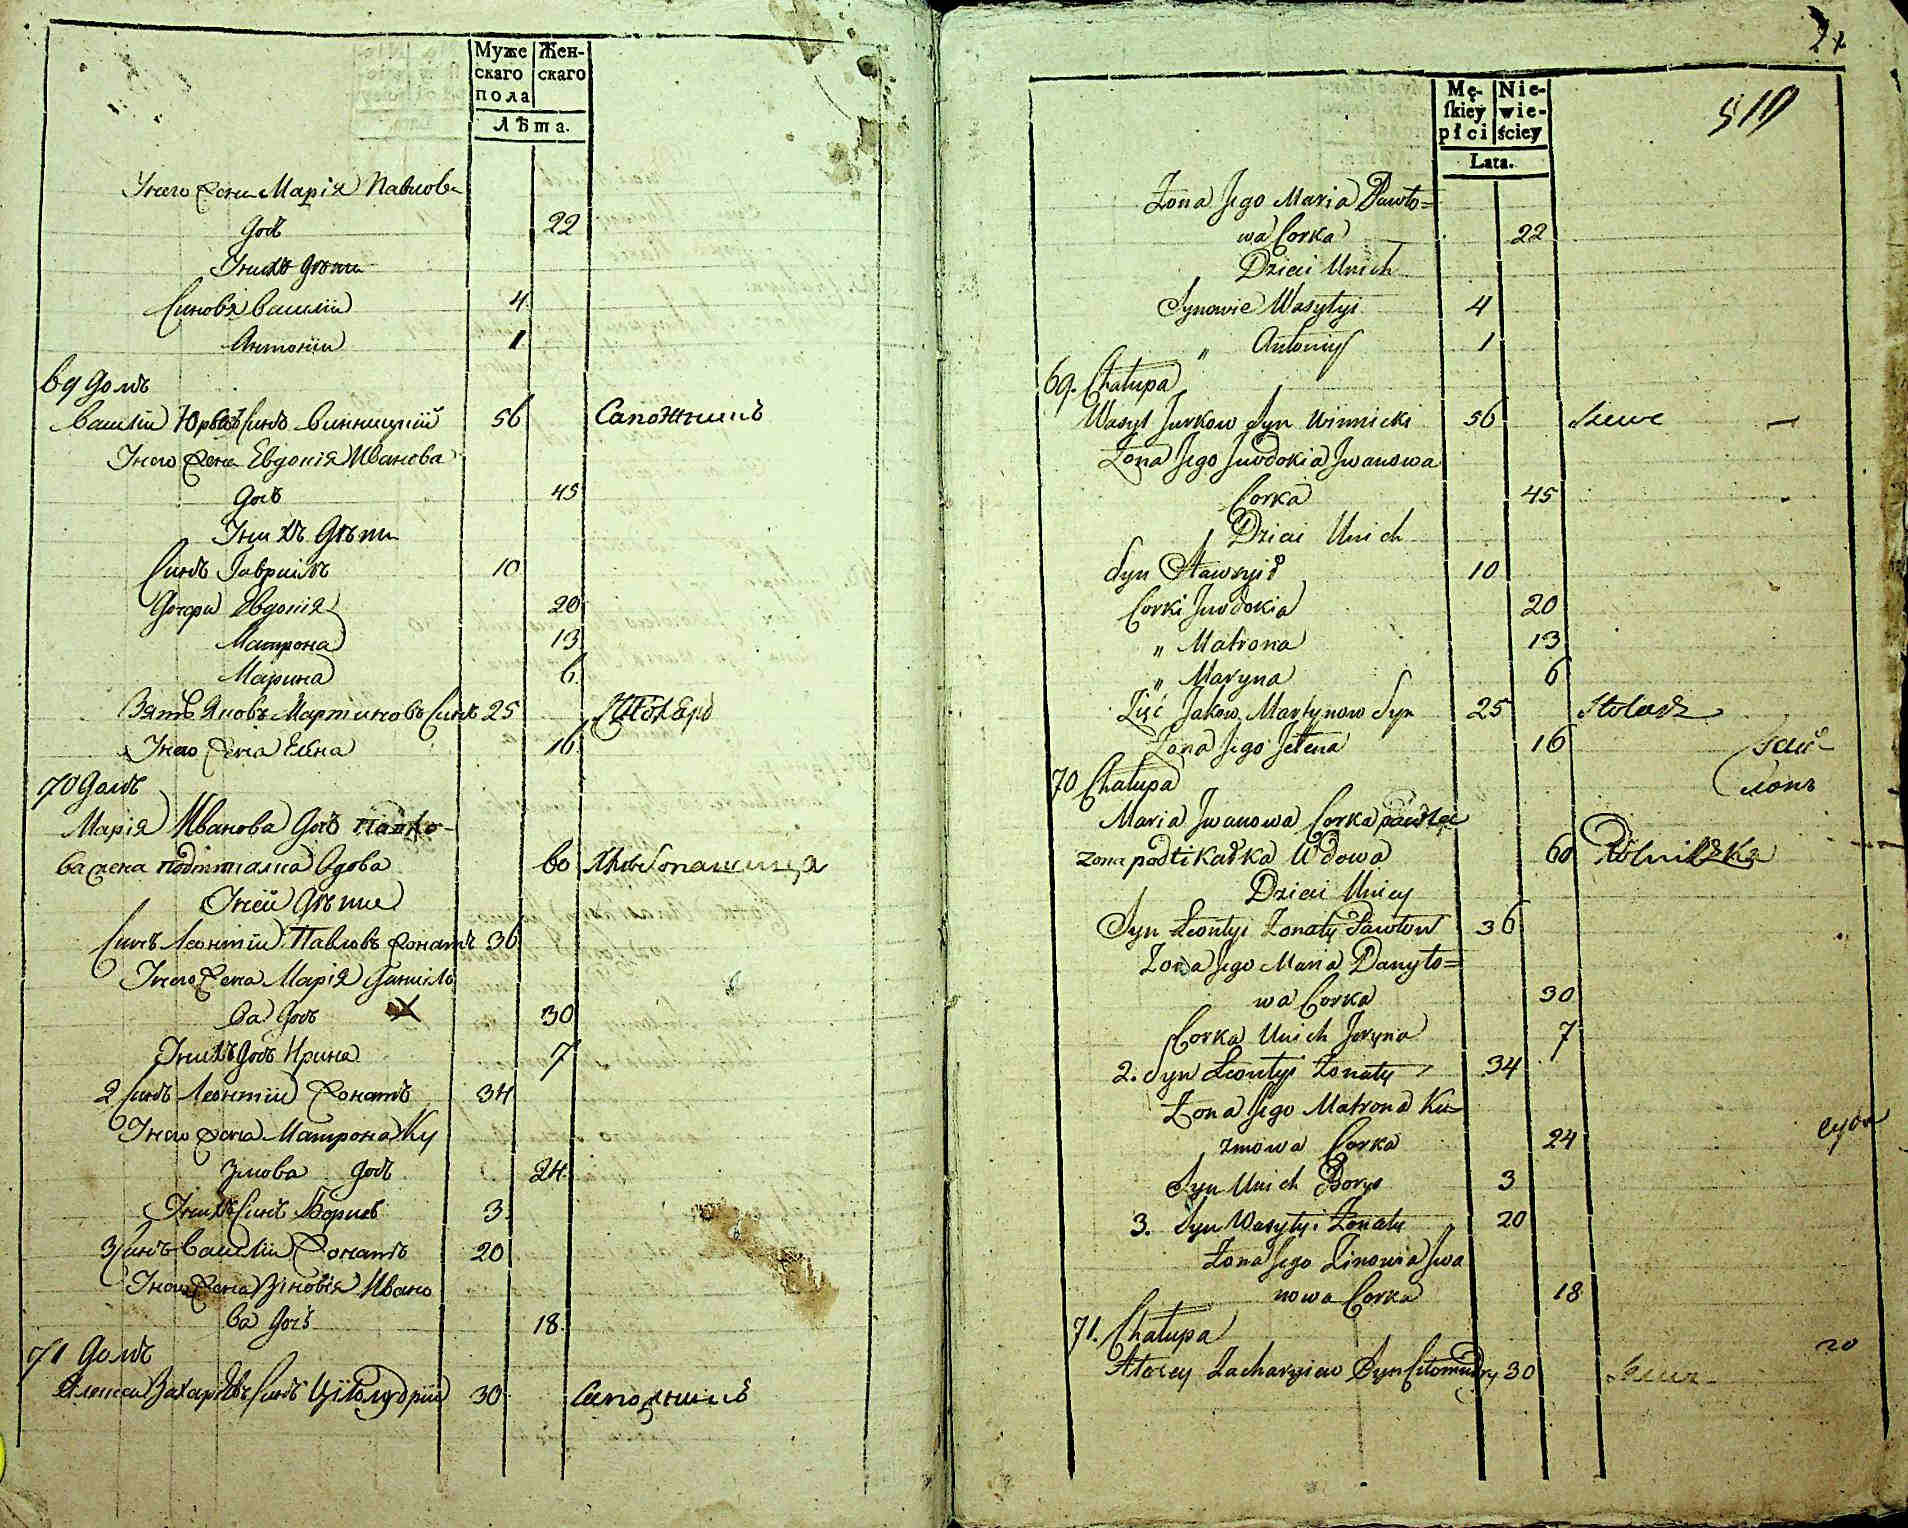 Муже
скаго
пола
Жен-
скаго
Лѣта.
У него жена Марія Павлова
дочь 22
У нихъ дѣти
Синовя Василій 4
Антоній 1
69 Домъ
Василій Юрковъ Синъ Винницкій 56 Сапожникъ
У него жена Евдокія Иванова
дочь 45
У нихъ дѣти
Синъ Гавріилъ 10
Дочери Евдокія 20
Матрона 13
Марина 6.
Зять Яковъ Мартиновъ Синъ 25 Столяръ
У него жена Елена 16.
70 Домъ
Марія Иванова дочь Павло-
ва жена Вдова 60
У ней дѣти
Синъ Леонтій Павловъ жонатъ 36
У него жена Марія Данилъ
ва дочь 30
У нихъ дочь Ирина 7
2 Синъ Леонтій жонатъ 34
У него жена Матрона Ку
змова дочь 24.
У нихъ Синъ Борисъ 3.
3 Синъ Василій жонатъ 20
У него жена Зіновія Ивано
ва дочь 18.
71 Домъ
Алексей Захаріевъ Синъ Цѣломудрій 30 Сапожникъ
2
510
Mę-
ſkiey
płci
Nie-
wie-
ściey
Lata.
Zona Jego Maria Pawło=
wa Corka 22
Dzieci Unich
Synowie Wasylyi 4
„ Antoniy 1
69. Chałupa
Wasyl Jurkow Syn Winnicki 56 Szewc
Zona Jego Jwdokia Jwanowa
Corka 45
Dzieci Unich
Syn Hawryił 10
Corki Jwdokia 20
„ Matrona 13
„ Maryna 6
Zięć Jakow Martynow Syn 25 Stolarz
Zona Jego Jełena 16
70 Chałupa
Maria Jwanowa Corka Pawła
zona Wdowa 60 Rolniczka
Dzieci Uniey
Syn Leontyi Zonaty Pawłow 36
Zona Jego Maria Danyło=
wa Corka 30
Corka Unich Jryna 7
2. Syn Leontyi Zonaty 34
Zona Jego Matrona Ku-
zmowa Corka 24
Syn Unich Borys 3
3. Syn Wasylyi Zonaty 20
Zona Jego Zinowia Jwa
nowa Corka 18
71. Chałupa
Alexey Zacharyiew Syn Cełomudry 30 Szewc